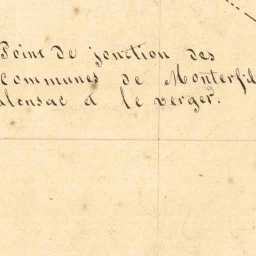 Point de jonction des
communes de Monterfil
alensac et le verger.